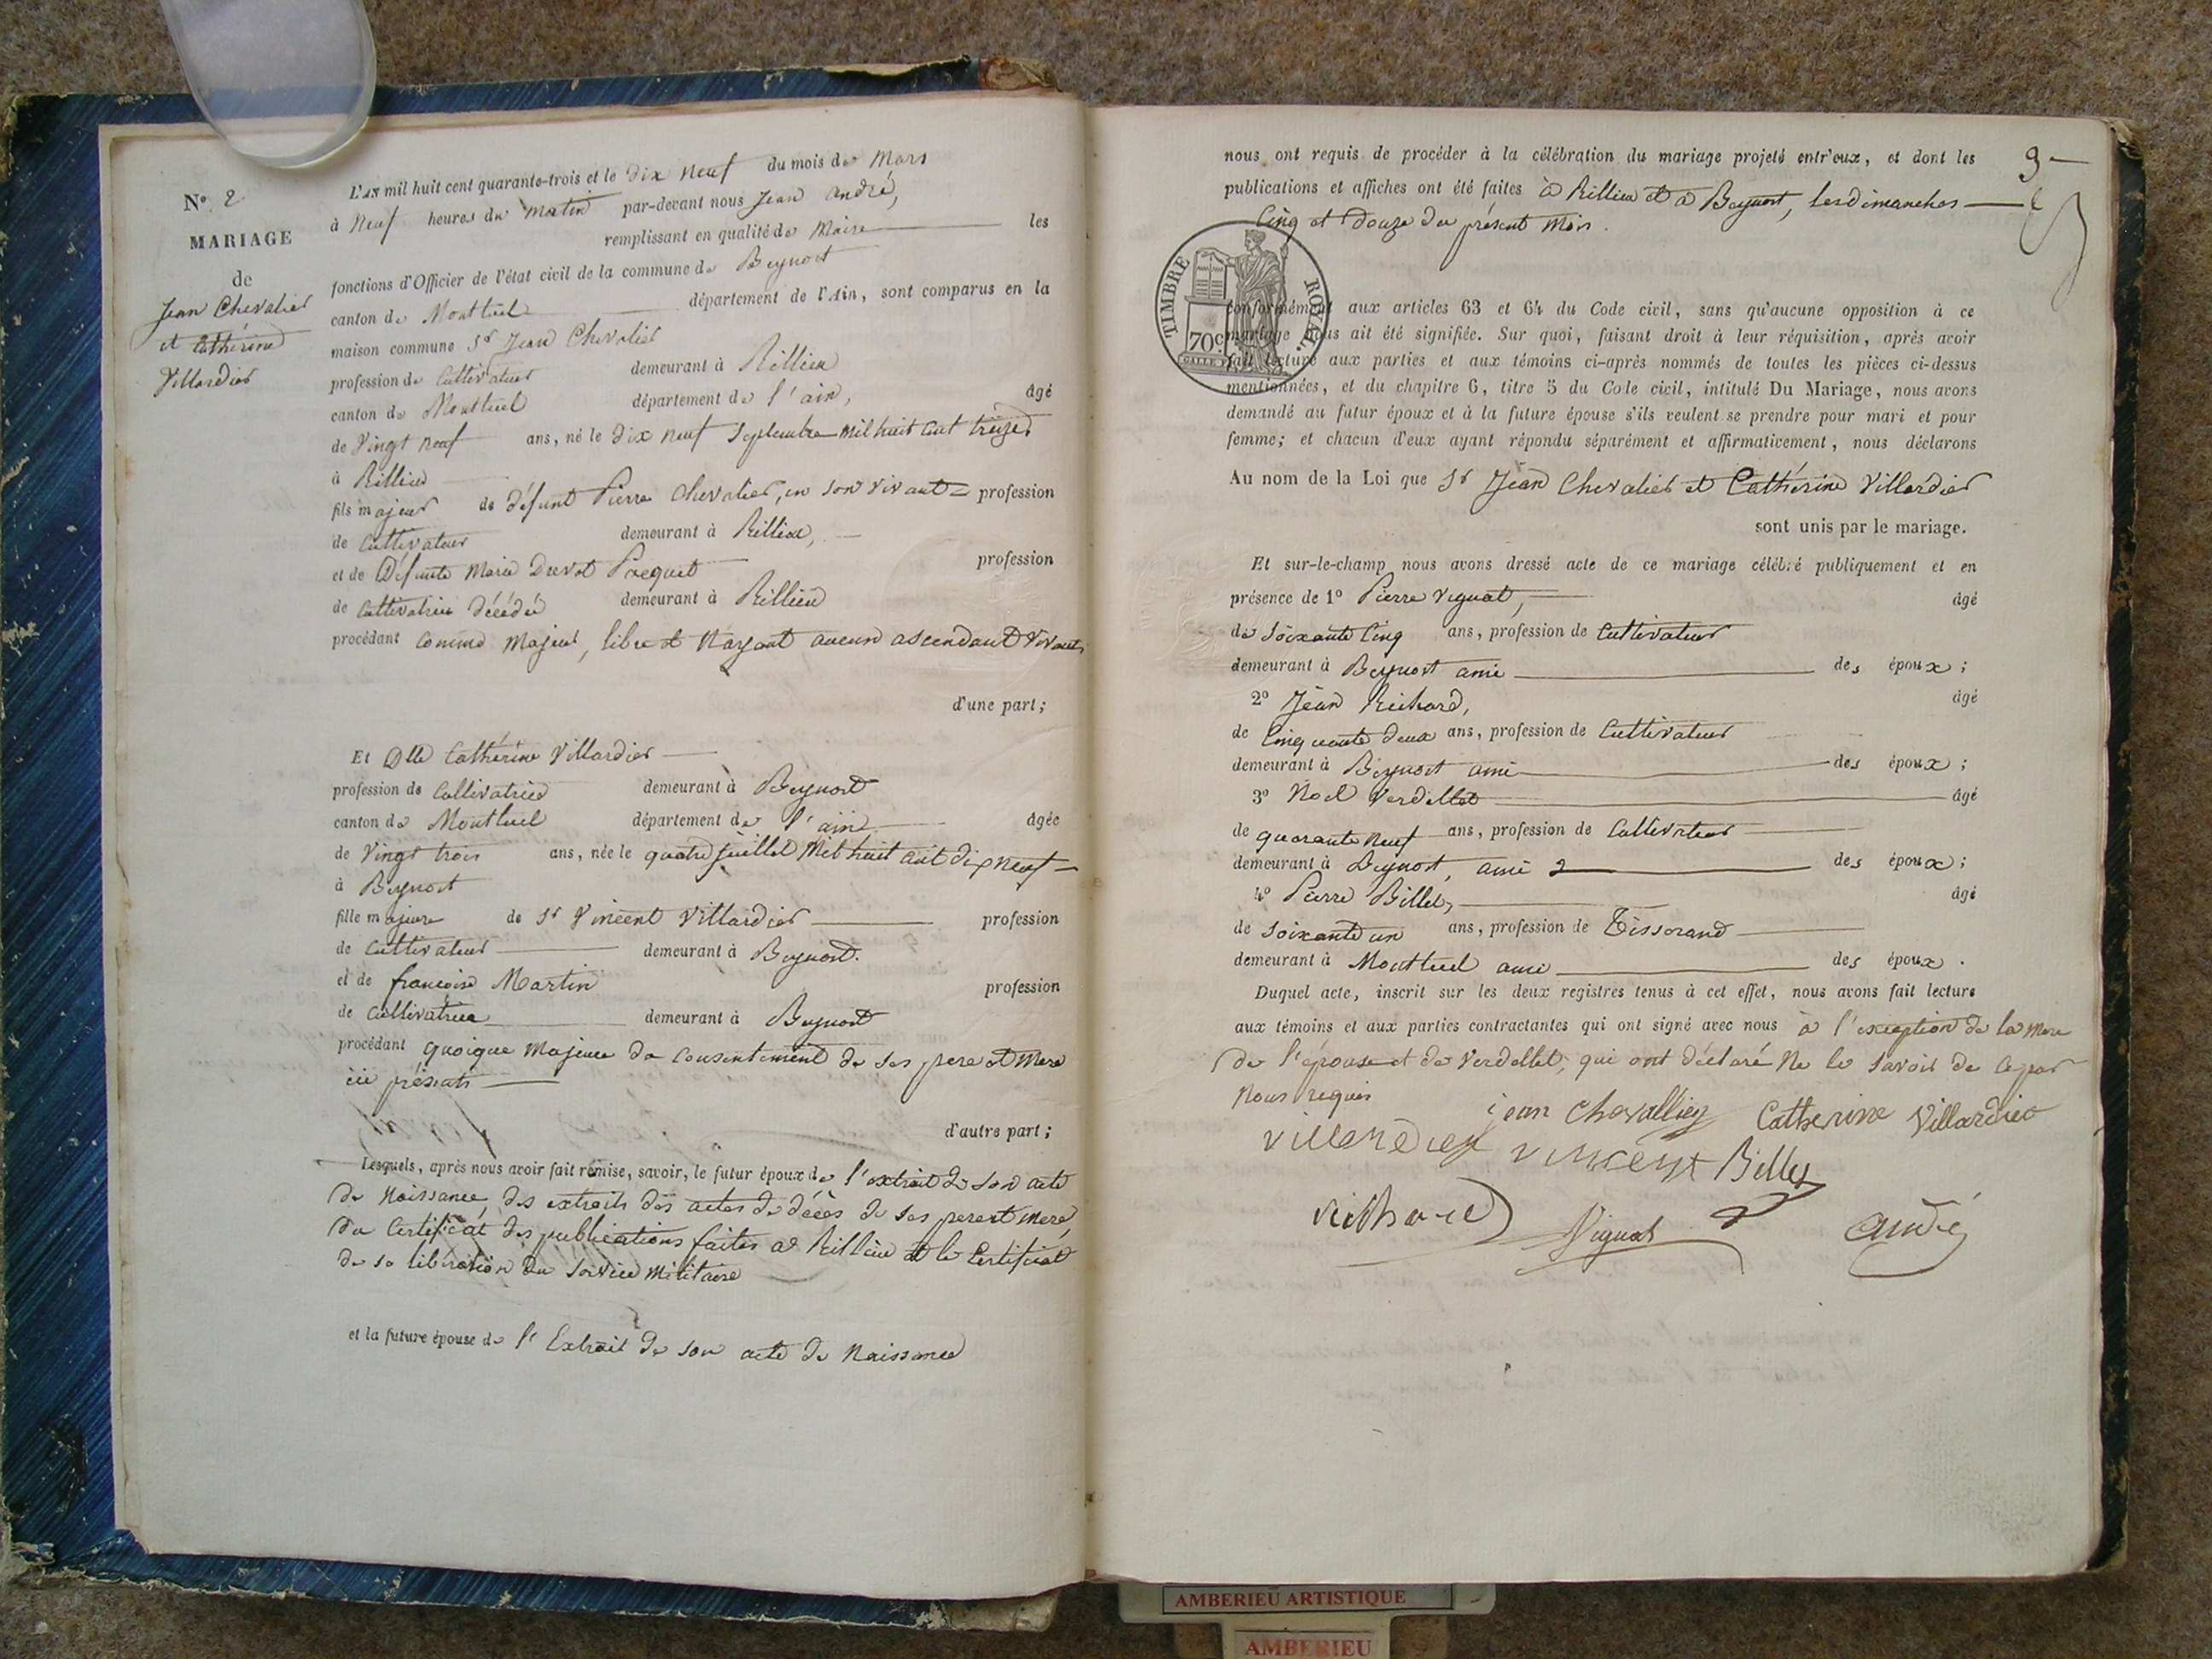 N° 2
MARIAGE
de
Jean Chevalier
et Catherine
Villardier
L'AN mil huit cent quarante-trois et le dix neuf du mois de Mars
à Neuf heures du Matin par-devant nous Jean André,
remplissant en qualité de Maire les
fonctions d'Officier de l'état civil de la commune de Beynost
canton de Montluel département de l'Ain, sont comparus en la
maison commune Sr Jean Chevalier
profession de Cultivateur demeurant à Rillieu
canton de Montluel département de l'ain, âgé
de Vingt neuf ans, né le dix neuf Septembre Mil huit cent treize
à Rillieu
fils majeur de défunt Pierre Chevalier, en son vivant profession
de Cultivateur demeurant à Rillieux,
et de Défunte Marie Profession
de Cultivatrice décédée demeurant à Rillieu
procédant comme Majeur, libre et N'ayant aucun ascendant Vivant,
d'une part;
Et Dlle Catherine Villardier
profession de Cultivatrice demeurant à Beynost
canton de Montluel département de l'ain âgée
de Vingt trois ans, née le quatre juillet Mil huit cent dix neuf
à Beynost
fille majeure de Sr Vincent Villardier profession
de Cultivateur demeurant à Beynost.
et de françoise Martin profession
de Cultivatrice demeurant à Beynost
procédant quoique Majeure du Consentement de ses pere et Mere
ici présents
d'autre part;
Lesquels, après nous avoir fait remise, savoir, le futur époux de l'extrait de son acte
de Naissance, des extraits des actes de décès de ses pere et mere,
du Certificat des publications faites à Rillieu et le Certificat
de sa libération du Service Militaire
et la future épouse de l'Extrait de son acte de Naissance
3
nous ont requis de procéder à la célébration du mariage projeté entr'eux, et dont les
publications et affiches ont été faites à Rillieu et à Beynost, les dimanches
Cinq et Douze du présent Mois.
TIMBRE ROYAL.
70c
conformément aux articles 63 et 64 du Code civil, sans qu'aucune opposition à ce
mariage nous ait été signifiée. Sur quoi, faisant droit à leur réquisition, après avoir
fait lecture aux parties et aux témoins ci-après nommés de toutes les pièces ci-dessus
mentionnées, et du chapitre 6, titre 5 du Code civil, intitulé Du Mariage, nous avons
demandé au futur époux et à la future épouse s'ils veulent se prendre pour mari et pour
femme; et chacun d'eux ayant répondu séparément et affirmativement, nous déclarons
Au nom de la Loi que Sr Jean Chevalier et Catherine Villardier
sont unis par le mariage.
Et sur-le-champ nous avons dressé acte de ce mariage célébré publiquement et en
présence de 1° Pierre Vignat, âgé
de Soixante Cinq ans, profession de Cultivateur
demeurant à Beynost ami des époux;
2° Jean Richard, âgé
de Cinquante deux ans, profession de Cultivateur
demeurant à Beynost ami des époux;
3° Noel Verdellet âgé
de quarante Neuf ans, profession de Cultivateur
demeurant à Beynost, ami des époux;
4° Pierre Billet, âgé
de Soixante un ans, profession de Tisserand
demeurant à Montluel ami des époux.
Duquel acte, inscrit sur les deux registres tenus à cet effet, nous avons fait lecture
aux témoins et aux parties contractantes qui ont signé avec nous à l'exception de la Mere
de l'épouse et de Verdellet, qui ont déclaré Ne le savoir de ce par
Nous requis
jean Chevallier Catherine Villardier
villardier vincent Billet
richard Vignat andré
AMBERIEU ARTISTIQUE
AMBERIEU